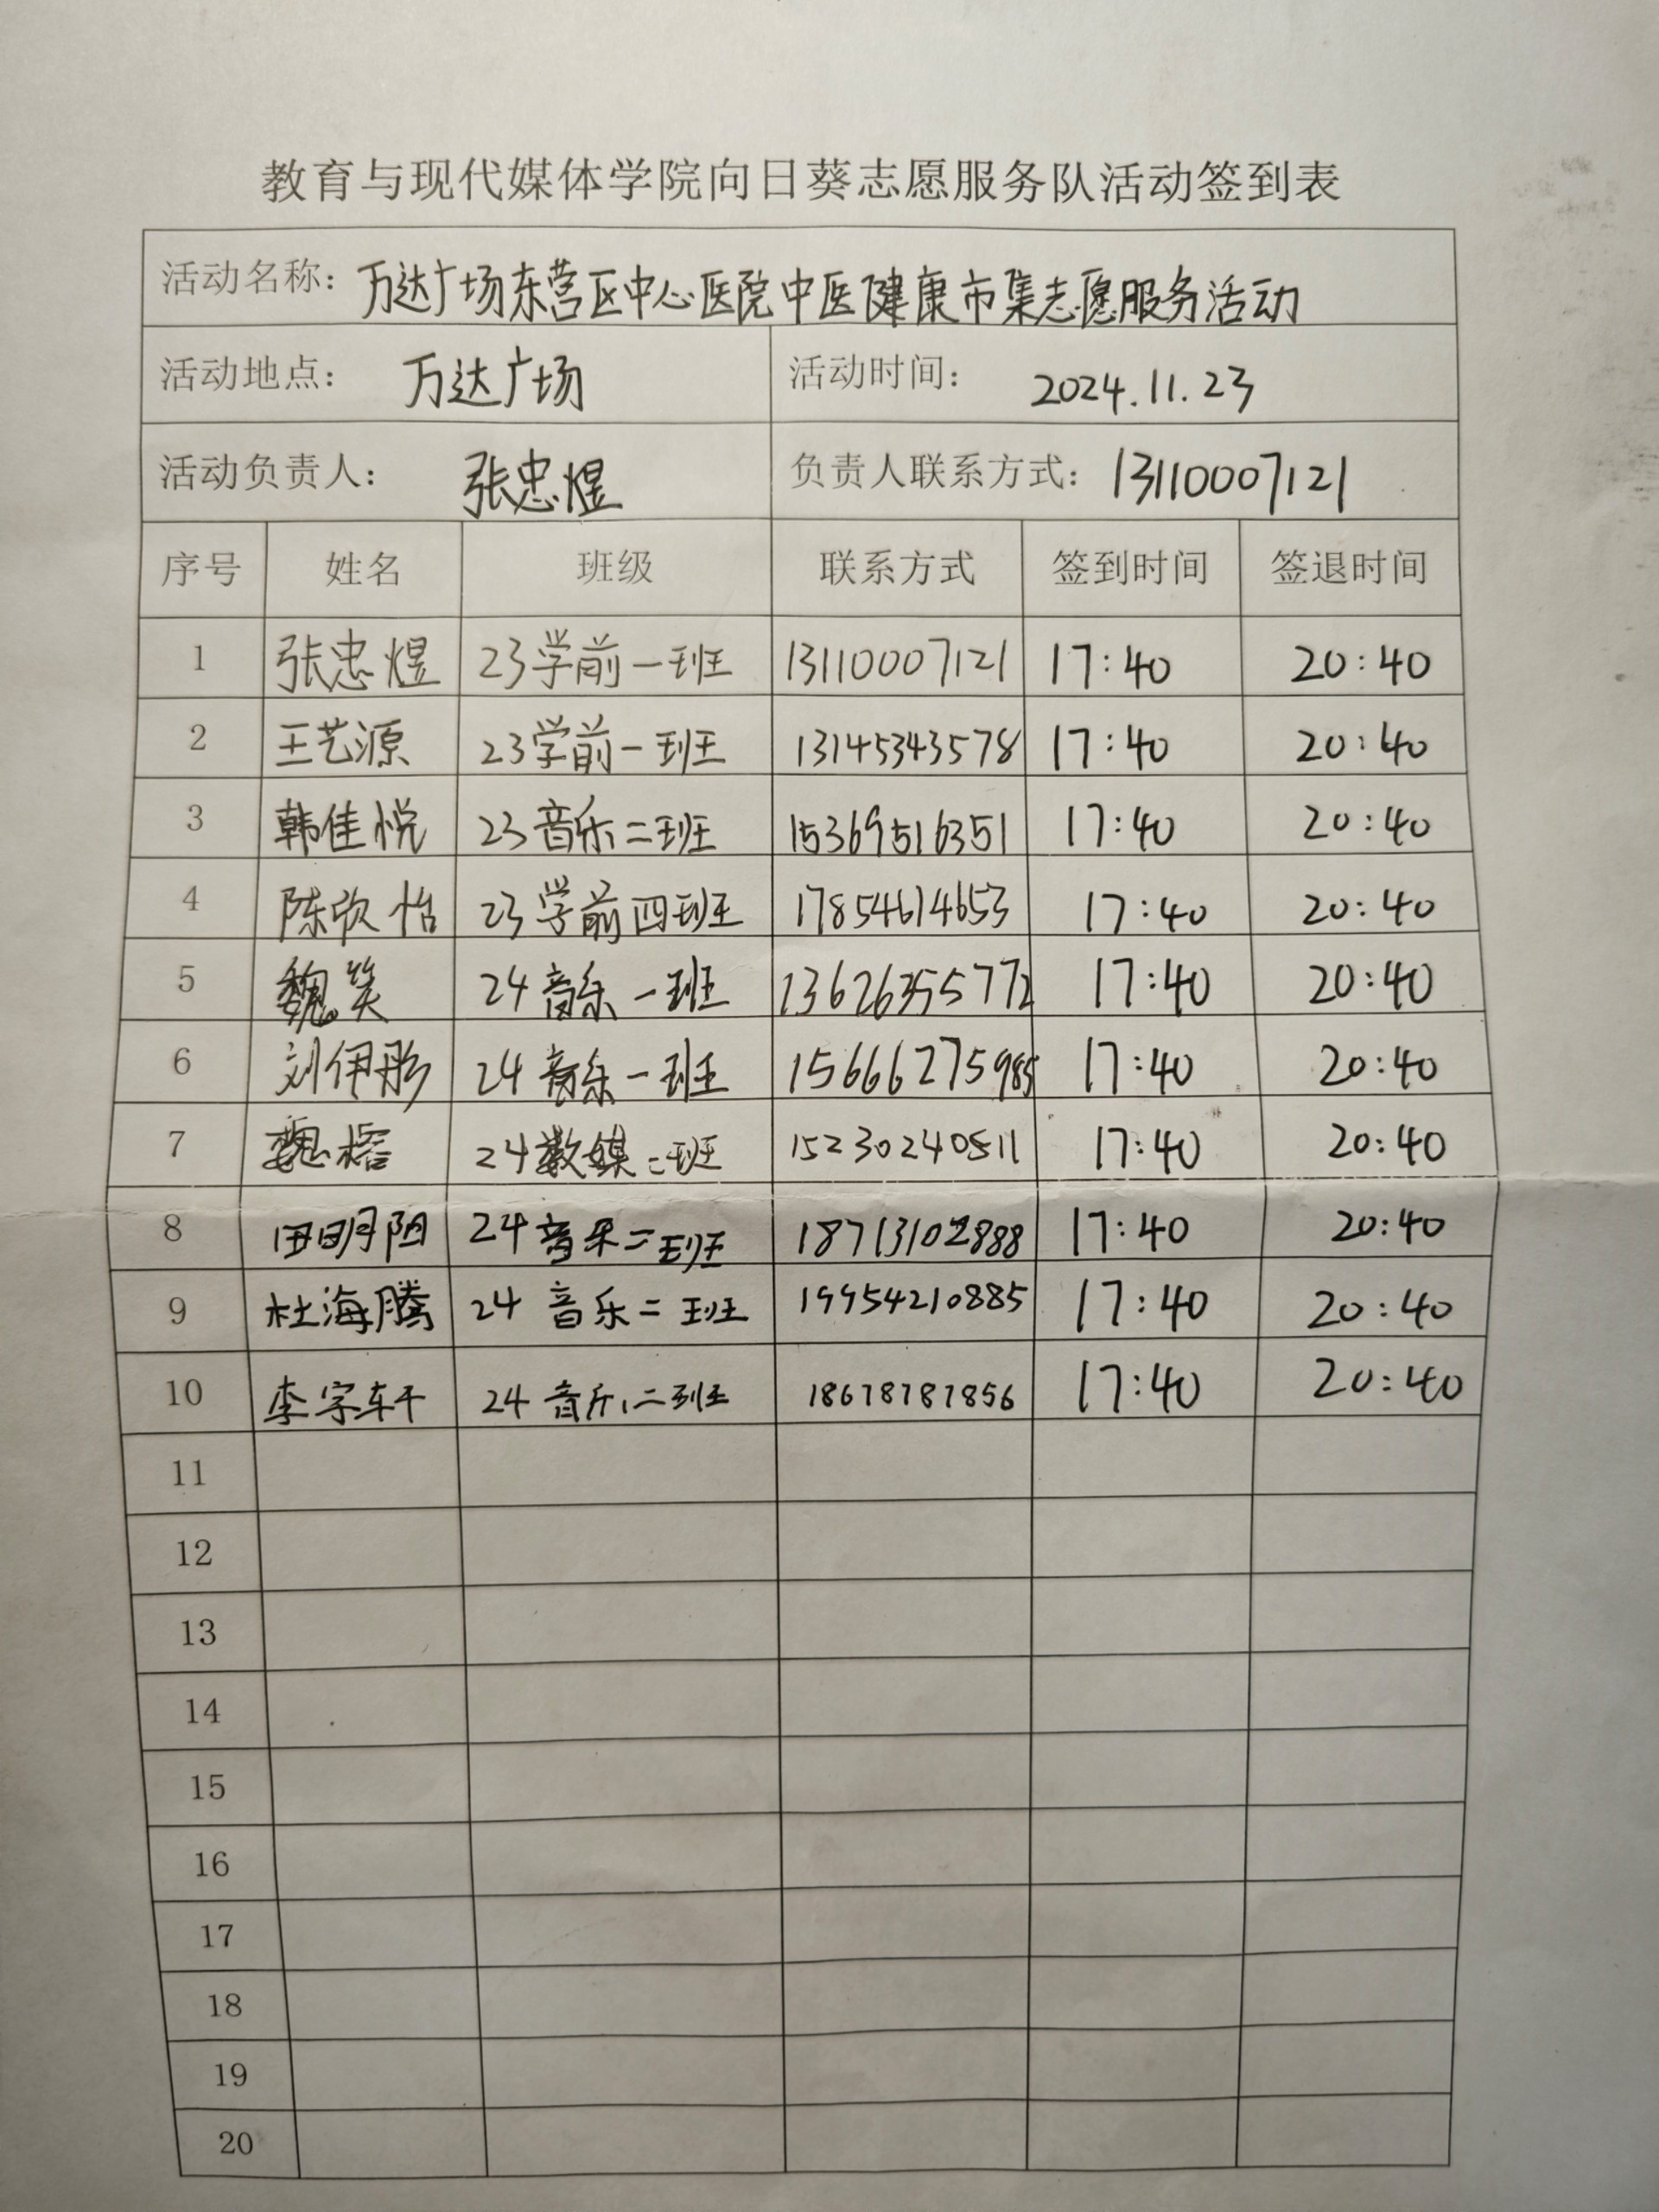 教育与现代媒体学院向日葵志愿服务队活动签到表
活动名称：万达广场东营区中心医院中医健康市集志愿服务活动
活动地点： 万达广场 活动时间： 2024.11.23
活动负责人： 张忠煜 负责人联系方式：13110007121
序号 姓名 班级 联系方式 签到时间 签退时间
1 张忠煜 23学前一班 13110007121 17:40 20:40
2 王艺源 23学前一班 13145343578 17:40 20:40
3 韩佳悦 23音乐二班 15369516351 17:40 20:40
4 陈欣怡 23学前四班 17854614653 17:40 20:40
5 魏笑 24音乐一班 13626355772 17:40 20:40
6 刘伊彤 24音乐一班 15666275985 17:40 20:40
7 魏榕 24数媒二班 15230240511 17:40 20:40
8 田明阳 24音乐二班 18713102888 17:40 20:40
9 杜海腾 24音乐二班 19954210885 17:40 20:40
10 李宗轩 24音乐二班 18678787856 17:40 20:40
11
12
13
14
15
16
17
18
19
20